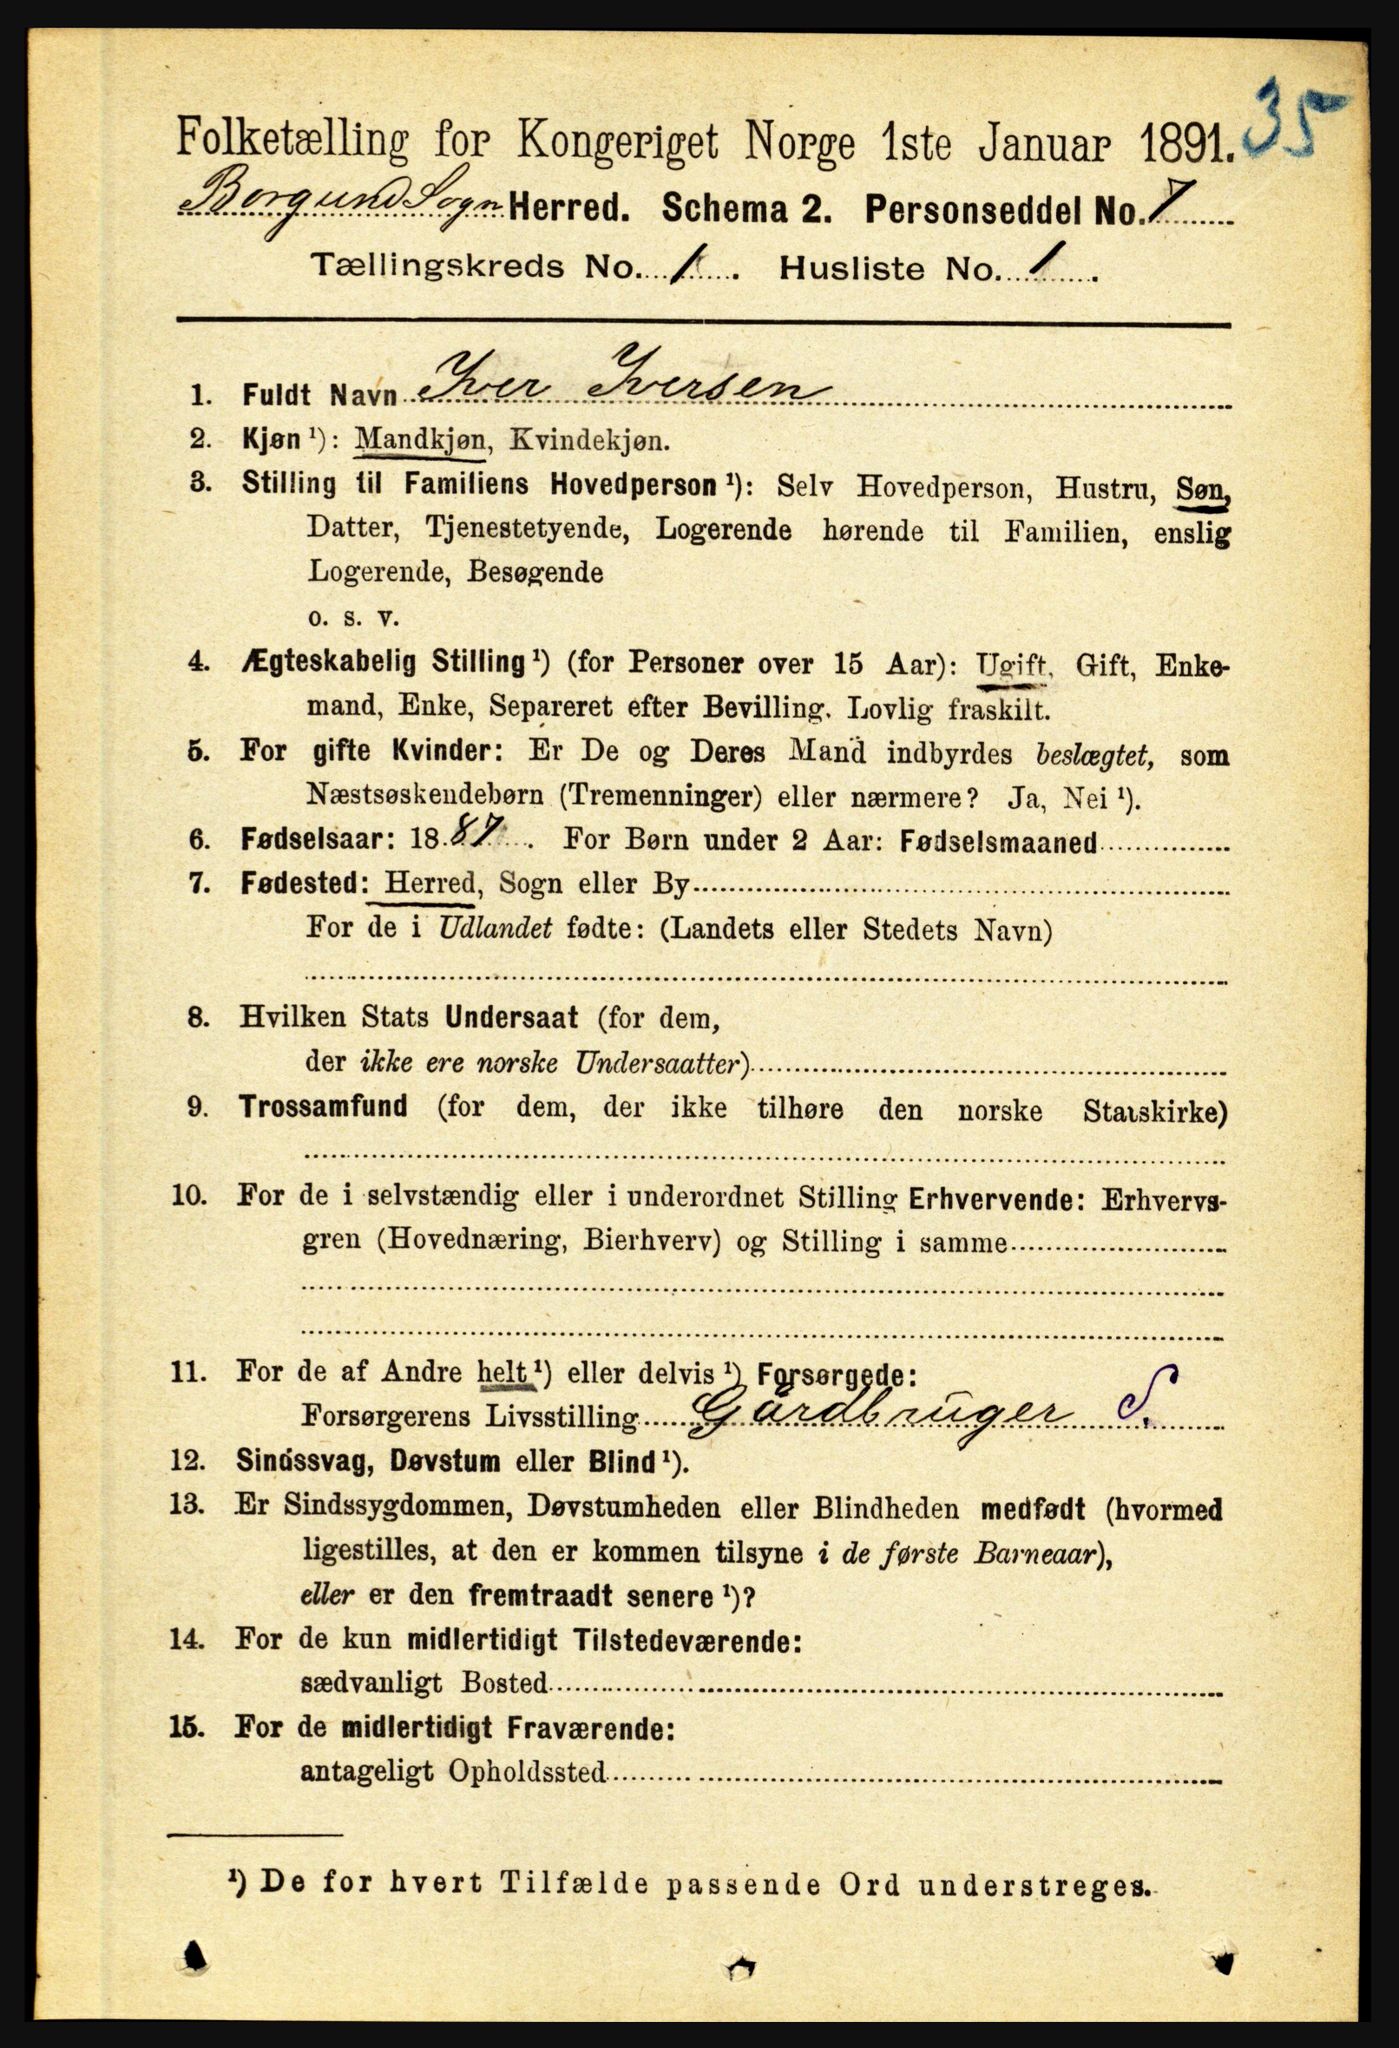 35
Folketælling for Kongeriget Norge 1ste Januar 1891.
Borgund Sogn Herred. Schema 2. Personseddel No. 7
Tællingskreds No. 1. Husliste No. 1.
1. Fuldt Navn Iver Iversen
2. Kjøn ¹): Mandkjøn, Kvindekjøn.
3. Stilling til Familiens Hovedperson ¹): Selv Hovedperson, Hustru, Søn,
Datter, Tjenestetyende, Logerende hørende til Familien, enslig
Logerende, Besøgende
o. s. v.
4. Ægteskabelig Stilling ¹) (for Personer over 15 Aar): Ugift, Gift, Enke-
mand, Enke, Separeret efter Bevilling. Lovlig fraskilt.
5. For gifte Kvinder: Er De og Deres Mand indbyrdes beslægtet, som
Næstsøskendebørn (Tremenninger) eller nærmere? Ja, Nei ¹).
6. Fødselsaar: 1887. For Børn under 2 Aar: Fødselsmaaned
7. Fødested: Herred, Sogn eller By
For de i Udlandet fødte: (Landets eller Stedets Navn)
8. Hvilken Stats Undersaat (for dem,
der ikke ere norske Undersaatter)
9. Trossamfund (for dem, der ikke tilhøre den norske Statskirke)
10. For de i selvstændig eller i underordnet Stilling Erhvervende: Erhvervs-
gren (Hovednæring, Bierhverv) og Stilling i samme
11. For de af Andre helt ¹) eller delvis ¹) Forsørgede:
Forsørgerens Livsstilling Gårdbruger S.
12. Sindssvag, Døvstum eller Blind ¹).
13. Er Sindssygdommen, Døvstumheden eller Blindheden medfødt (hvormed
ligestilles, at den er kommen tilsyne i de første Barneaar),
eller er den fremtraadt senere ¹)?
14. For de kun midlertidigt Tilstedeværende:
sædvanligt Bosted
15. For de midlertidigt Fraværende:
antageligt Opholdssted
¹) De for hvert Tilfælde passende Ord understreges.